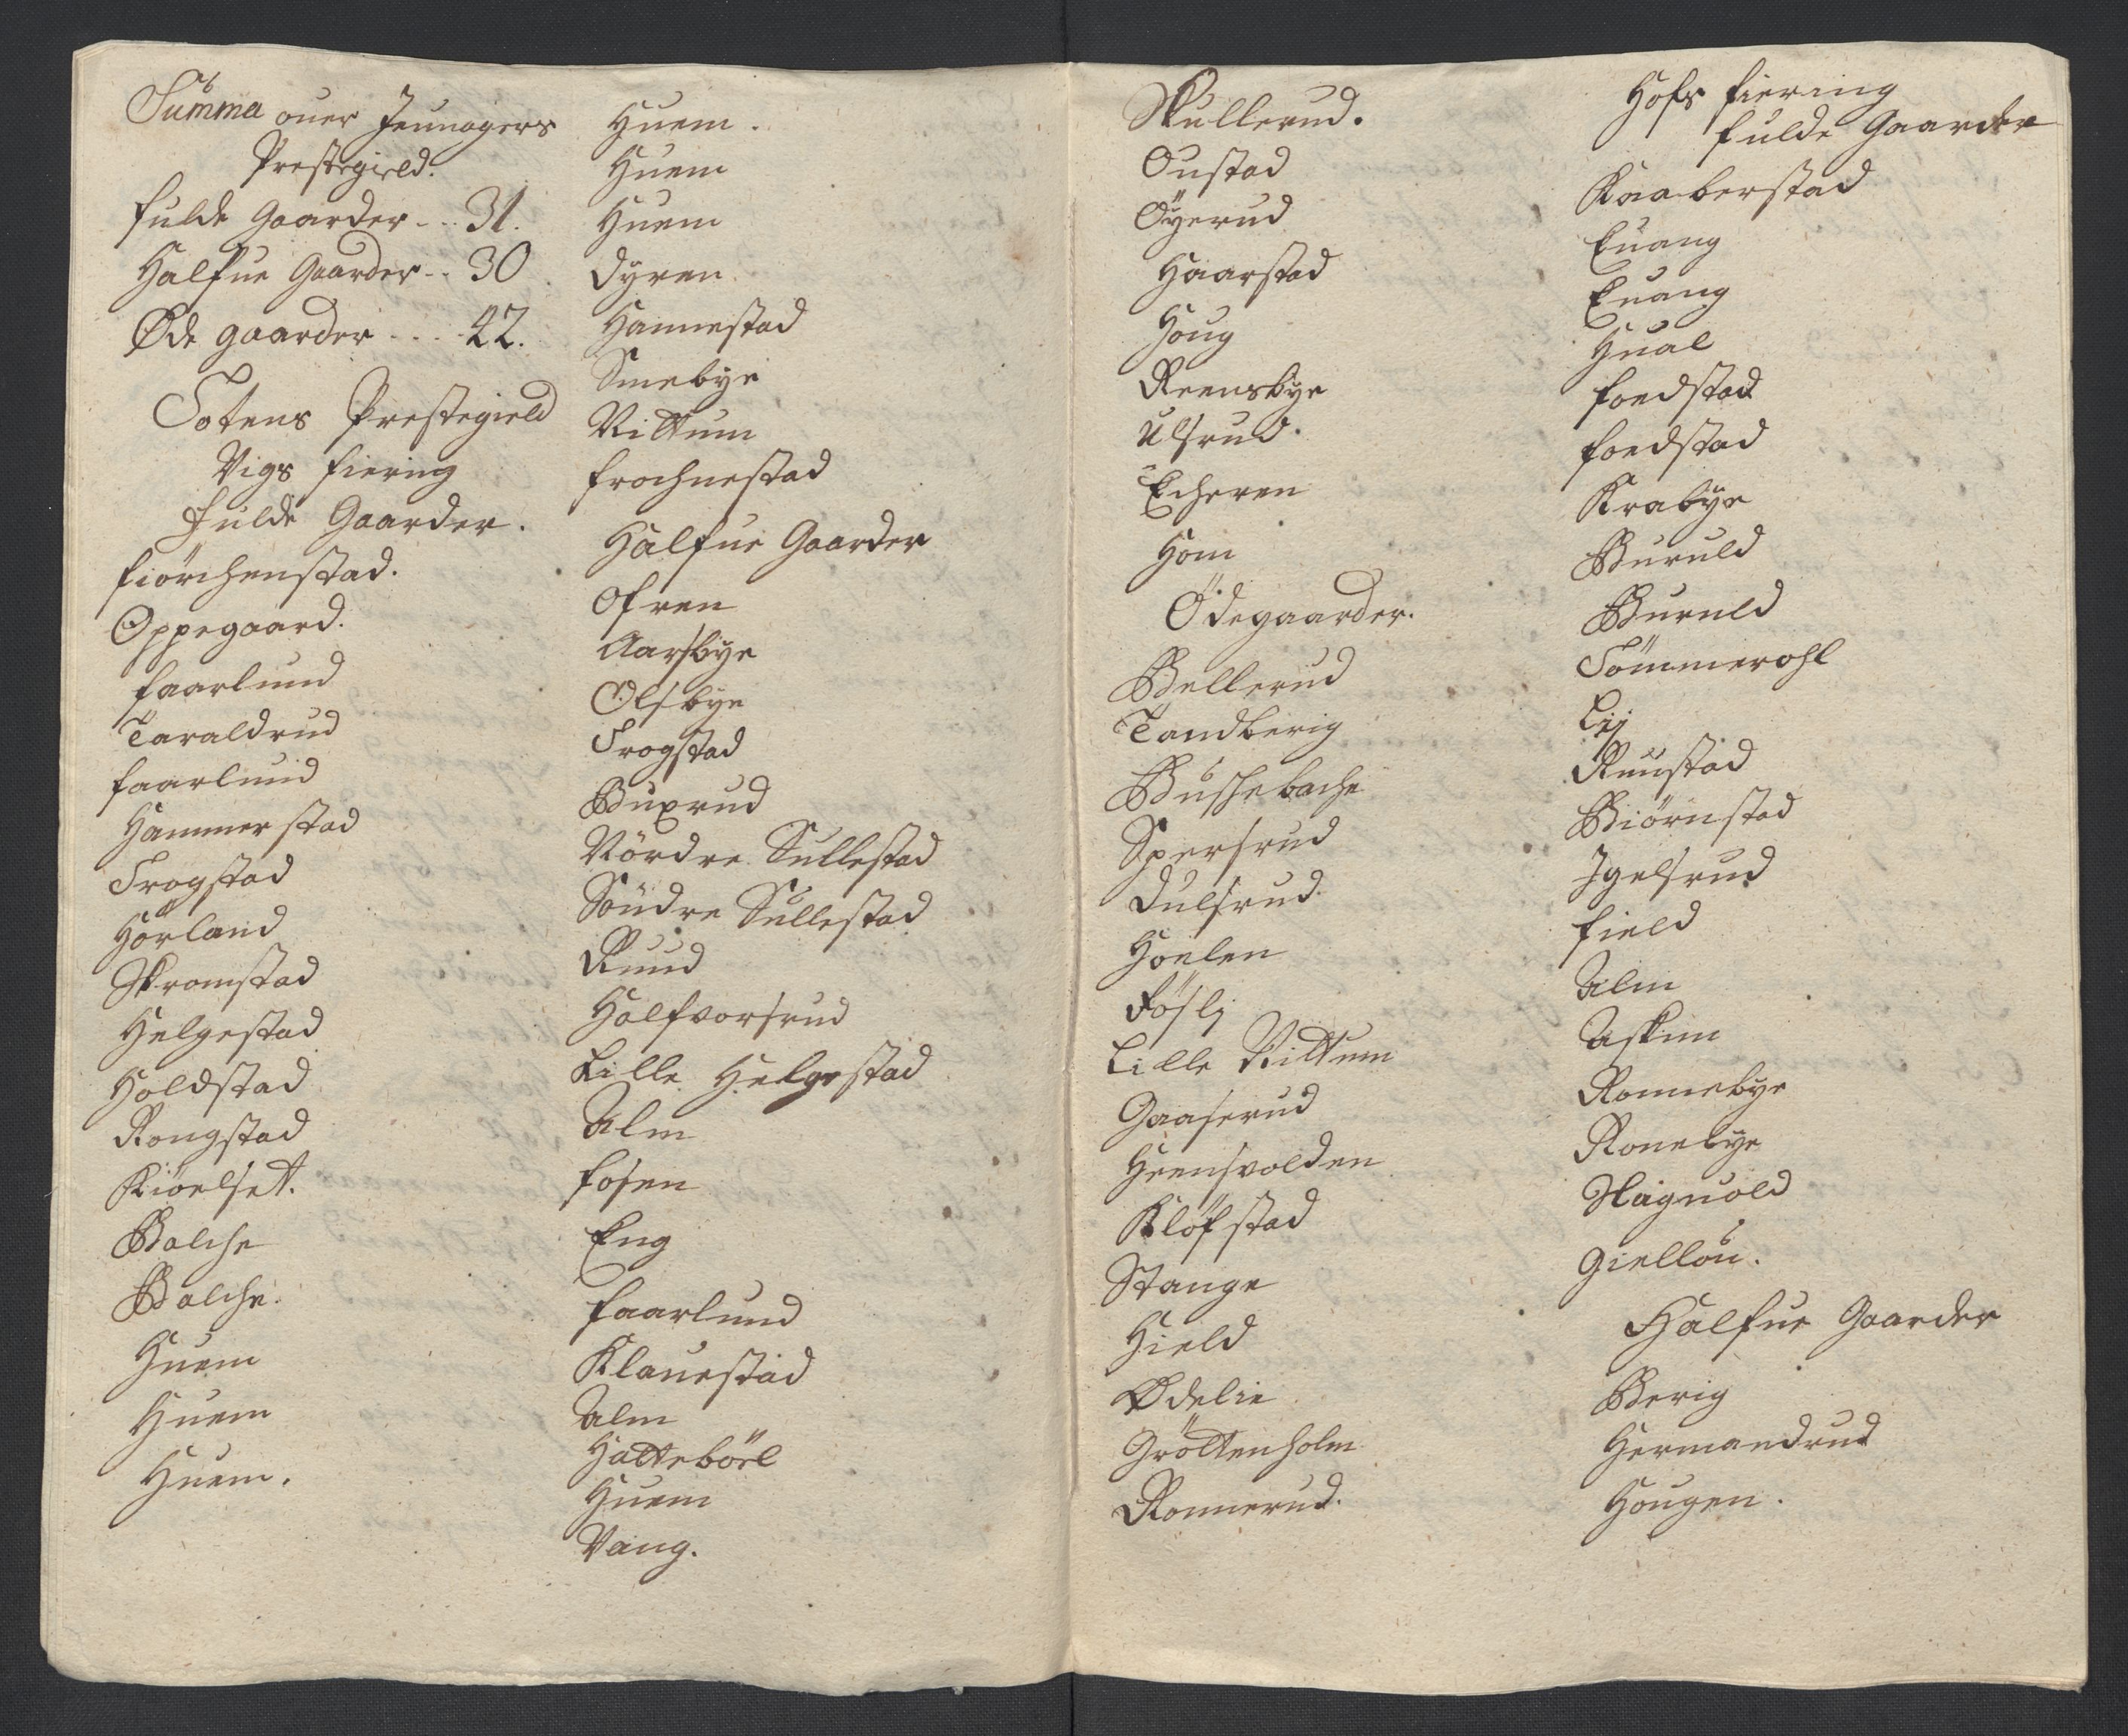 Summa ouer Jeunagers
Prestegield.
fulde Gaarder - - 31.
Halfue Gaarder - - 30
Øde gaarder - - - 42.
Totens Prestegield
Vigs fiering
Fulde Gaarder.
fiörchenstad.
Oppegaard.
faarlund
Taraldrud
faarlund
Hammerstad
Trogstad
Hörland
Skramstad
Helgestad
Holdstad
Rongstad
Kiöelset.
Balche
Balche.
Huem
Huem
Huem.
Huem.
Huem
Huem
Dyren
Hannestad
Smebye
Vittum
frochnestad
Halfue Gaarder
Ofren
Aarsbye
Olsbye
Trogstad
Buxrud
Nördre Sullestad
Söndre Sullestad
Ruud
Halfvorsrud
Lille Helgestad
Alm
fosen
Eng
faarlund
Klauestad
Alm
Hattebörl
Huem
Vang.
Skullerud.
Oustad
Öyerud
Haarstad
Houg
Reensbye
Ulsrud.
Echeren
Hom
Ödegaarder.
Bellerud
Tandberig
Bushebache
Spersrud
Dulsrud
Hoelen
Fösli
Lille Vittum
Gaaserud
Heensvolden
Klöfstad
Stange
Hield
Ødelie
Gröttenholm
Ronnerud.
Hofs fiering
fulde Gaarder
Kaaberstad
Euang
Euang
Hual
foedstad
foedstad
Krabye
Buruld
Buruld
Sömmerohl
Lij
Ruustad
Biörnstad
Igelsrud
field
Alm
Askim
Ronnebye
Ronebye
Haguold
Giellou.
Halfue Gaarder
Berig
Hermandrud
Hougen.